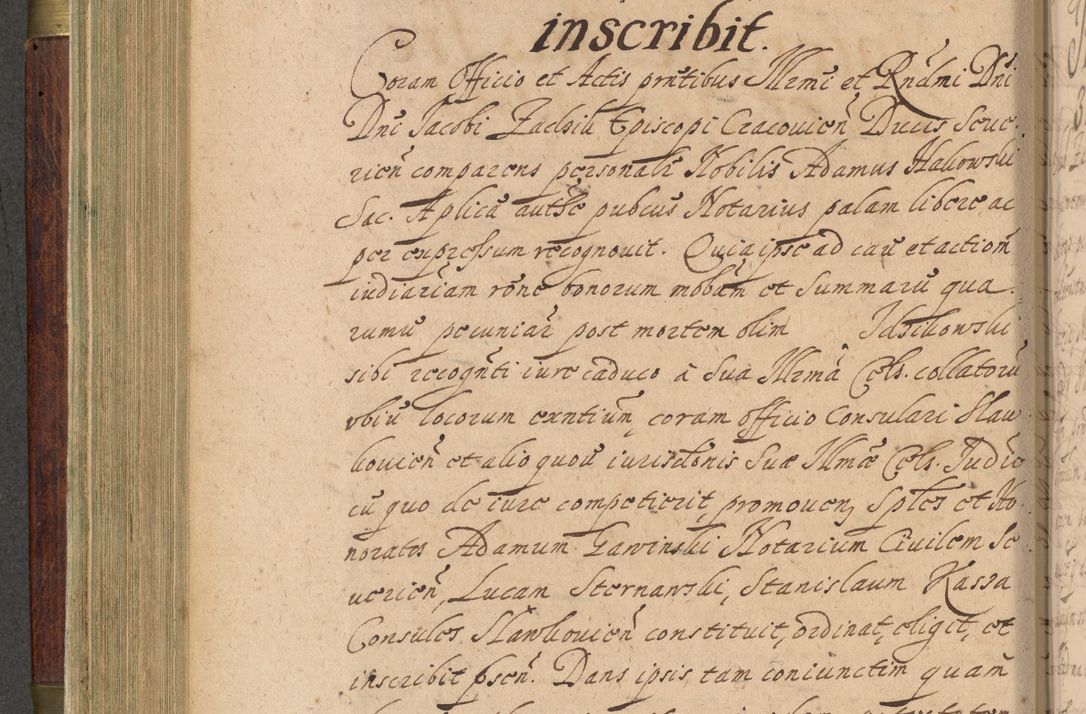 inscribit.
Coram Officio et Actis prntibus Illrmi et Rndmi Dni
Dni Jacobi Zadzik Episcopi Cracouien Ducis Seue-
rien comparens personalr Nobilis Adamus Hallowski
Sac. Aplica autħe pubcus Notarius palam libere ac
per expressum recognouit. Quia ipse ad cau et action
iudiariam rone bonorum mobm et Summaru qua-
rumu pecuniar post mortem olim Idzikowski
sibi recognti iure caduco a Sua Illrma Cels. collatoru
vbiu locorum exntium, coram officio Consulari Slaw
kouien et alio quou iurisdonis Suæ Illmæ Cels. Judic
cu quo de iure competierit, promouen, Sples et Ho-
noratos Adamum Gawinski Notarium Ciuilem Se-
uerien, Lucam Sternawski, Stanislaum Kassa
Consules Slawkouien constituit, ordinat, eligit, et
inscribit psen. Dans ipsis tam coniunctim quam